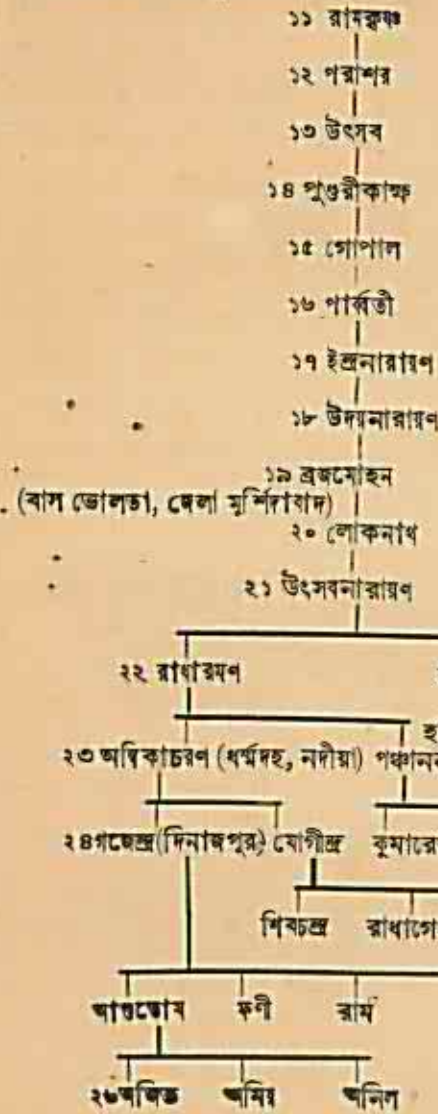 ১১ রামকৃষ্ণ
১২ পরাশর
১৩ উৎসব
১৪ পুণ্ডরীকাক্ষ
১৫ গোপাল
১৬ পার্ব্বতী
১৭ ইন্দ্রনারায়ণ
১৮ উদয়নারায়ণ
১৯ ব্রজমোহন
(বাস ভোলতা, জেলা মুর্শিদাবাদ)
২০ লোকনাথ
২১ উৎসবনারায়ণ
২২ রাধারমণ
হ
২৩ অম্বিকাচরণ (ধর্ম্মদহ, নদীয়া) পঞ্চানন
২৪ গজেন্দ্র (দিনাজপুর) যোগীন্দ্র কুমারে
শিবচন্দ্র রাধাগো
আশুতোষ ফণী রাম
২৬ অজিত অমিয় অনিল